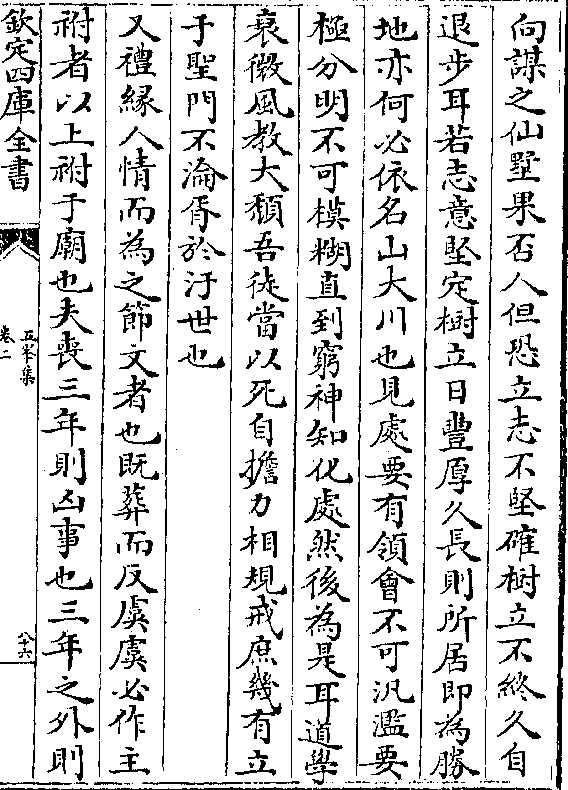 向謀之仙墅果否人但恐立志不堅確樹立不終久自
退步耳若志意堅定樹立日豐厚久長則所居即為勝
地亦何必依名山大川也見處要有領會不可汎濫要
極分明不可模糊直到窮神知化處然後為是耳道學
衰微風教大頽吾徒當以死自擔力相規戒庶幾有立
于聖門不淪胥於汙世也
又禮縁人情而為之節文者也既葬而反虞虞必作主
祔者以上祔于廟也夫喪三年則凶事也三年之外則
欽定四庫全書
五峯集
卷二
八十六